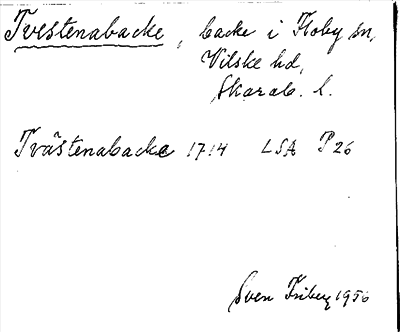 Tvestenabacke, backe i Floby sn,
Vilske hd,
Skarab. l.
Tvästenabacke 1714 LSA P 26
Sven Friberg 1956